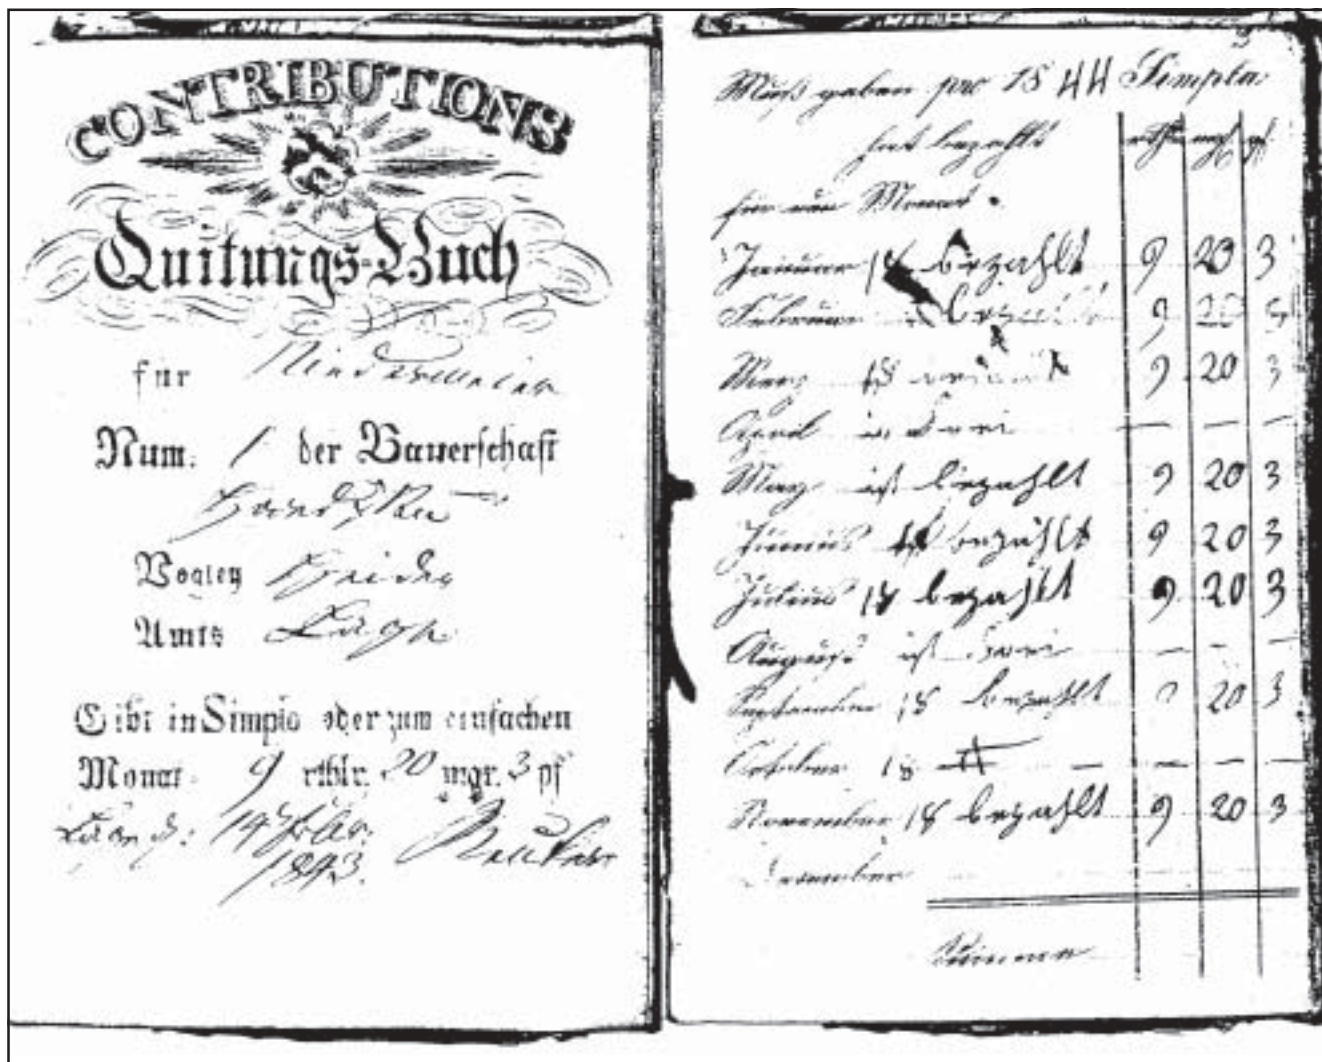 CONTRIBUTIONS
Quitungs-Buch
für Niedermeier
Num: 1 der Bauerschaft
Vogtey Heiden
Amts Lage
Gibt in Simplo oder zum einfachen
Monat 9 rthlr. 20 mgr. 3 pf
Lage d: 14 Febr.
1843.
3
Muß geben pro 1844 Simpla
hat bezahlt rthlr mgr pf
für den Monat
Januar ist bezahlt 9 20 3
Februar ist bezahlt 9 20 3
Merz ist bezahlt 9 20 3
April ist Frei — — —
May ist bezahlt 9 20 3
Junius ist bezahlt 9 20 3
Julius ist bezahlt 9 20 3
August ist Frei — — —
September ist bezahlt 9 20 3
October ist — — —
November ist bezahlt 9 20 3
December
Summa